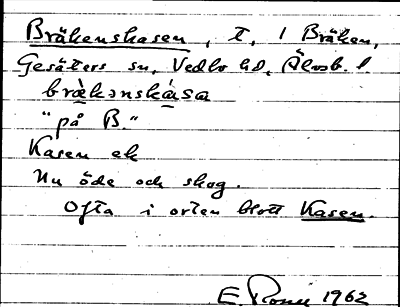 Bräkenskasen, t, l Bräken,
Gesäters sn, Vedbo hd, Älvsb. l.
brækənskàsa
"på B."
Kasen ek
Nu öde och skog.
Ofta i orten blott Kasen.
E. 1962